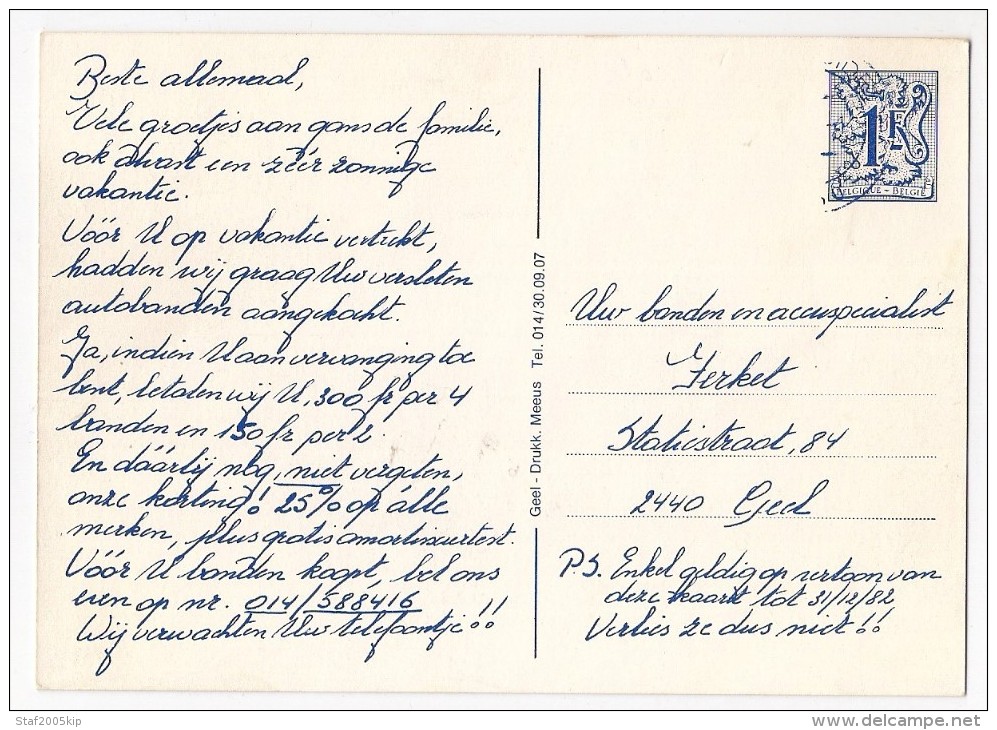 Beste allemaal,
Vele groetjes aan gans de familie,
ook alvast een zéér zonnige
vakantie.
Vóór U op vakantie vertrekt,
hadden wij graag Uw versleten
autobanden aangekocht.
Ja, indien U aan vervanging toe
bent, betalen wij U, 300 fr per 4
banden en 150 fr per 2.
En dáárbij nog, niet vergeten,
onze korting! 25% op álle
merken, plus gratis amortisseurtest.
Vóór U banden koopt, bel ons
even op nr. 014/588416
Wij verwachten Uw telefoontje!!
Geel - Drukk. Meeus Tel. 014/30.09.07
1F
BELGIQUE - BELGIË
Uw banden en accuspecialist
Ferket
Statiestraat, 84
2440 Geel
P.S. Enkel geldig op vertoon van
deze kaart tot 31/12/82
Verlies ze dus niet!!
Staf2005kip
www.delcampe.net